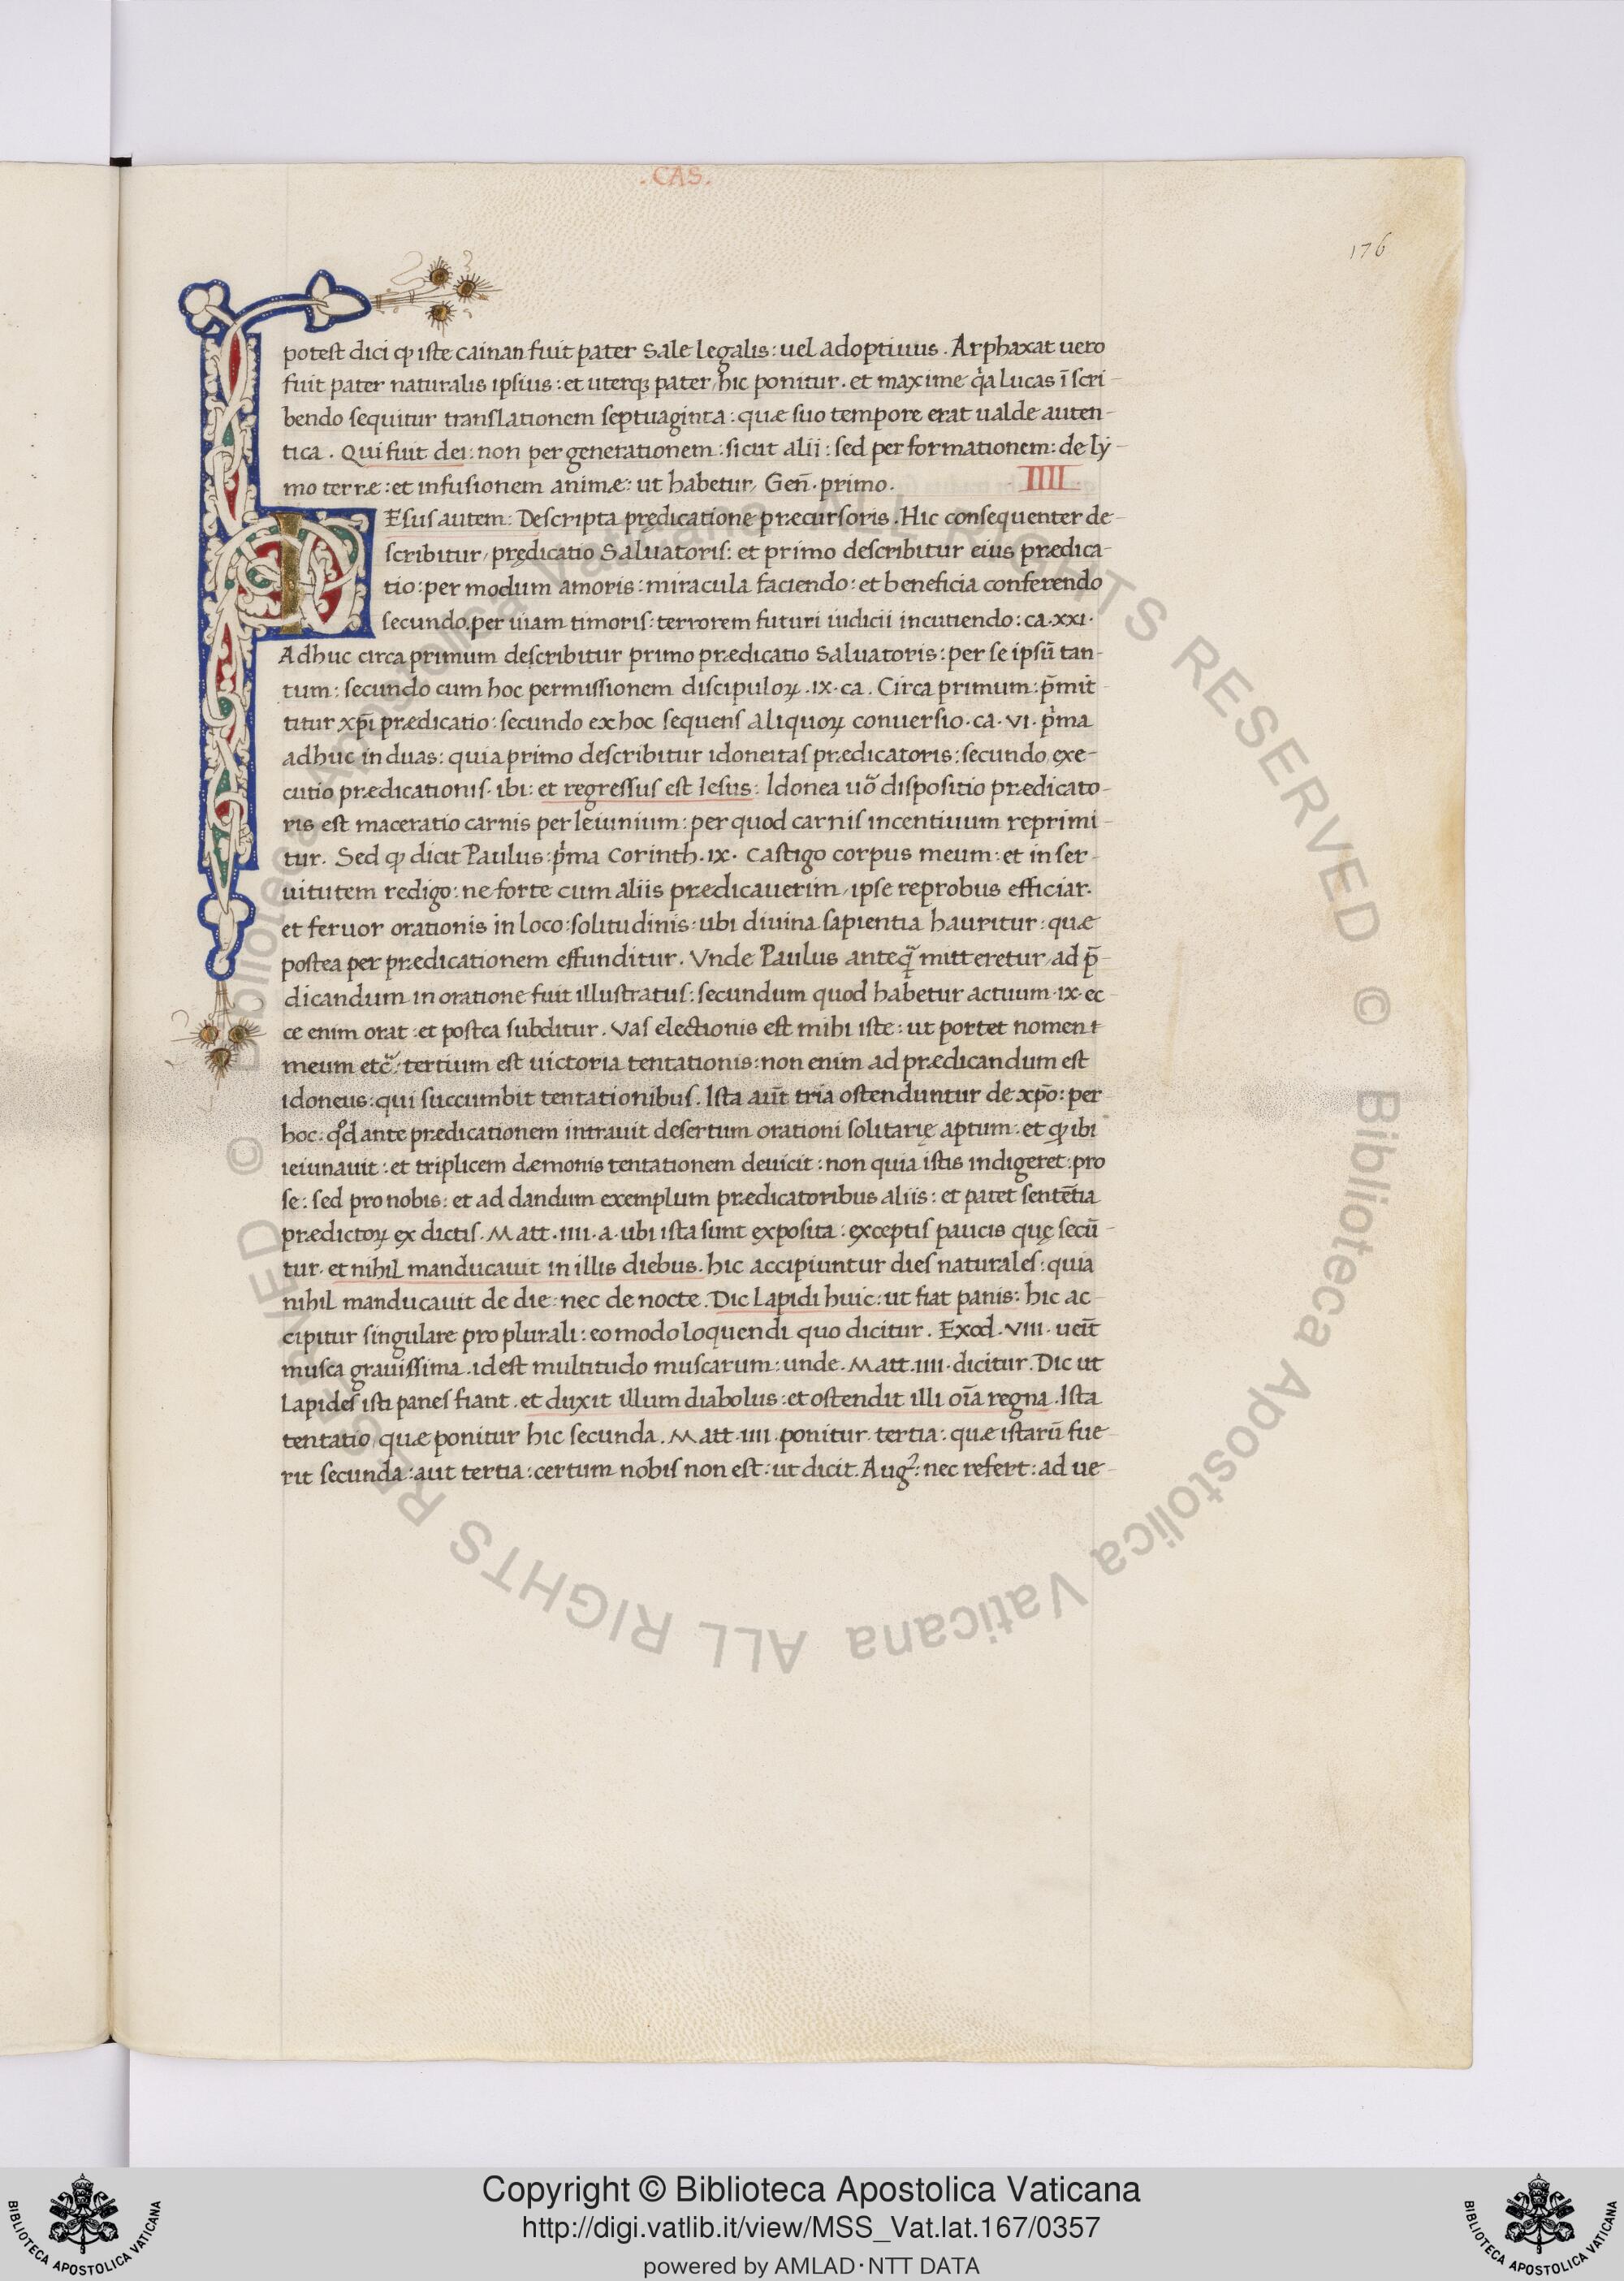 .CAS.
176
potest dici ꝙ iste cainan fuit pater Sale legalis: uel adoptiuus. Arphaxat uero
fuit pater naturalis ipsius: et uterqꝫ pater, hic ponitur. et maxime q̇a Lucas ī scri-
bendo sequitur translationem septuaginta: quæ suo tempore erat ualde auten-
tica. Qui fuit dei: non per generationem: sicut alii: sed per formationem: de lẏ-
mo terræ: et infusionem animæ: ut habetur, Gen̄. primo.
IIII
IEsus autem: Descripta pręedicatione præcursoris. Hic consequenter de-
scribitur, prędicatio Saluatoris: et primo describitur eius prædica-
tio: per modum amoris: miracula faciendo: et beneficia conferendo
secundo, per uiam timoris: terrorem futuri iudicii incutiendo: ca. xxı.
Adhuc circa primum describitur primo prædicatio Saluatoris: per se ipsū tan-
tum: secundo cum hoc permissionem discipuloꝝ. ıx. ca. Circa primum: p̄mit-
titur xp̄i prædicatio: secundo ex hoc sequens aliquoꝝ conuersio. ca. vı. p̍ma
adhuc in duas: quia primo describitur idoneitas prædicatoris: secundo, exe-
cutio prædicationis. ibi: et regressus est Iesus: Idonea uõ dispositio prædicato-
ris est maceratio carnis per Ieiunium: per quod carnis incentiuum reprimi-
tur. Sed ꝙ dicit Paulus: p̍ma Corinth. ıx. Castigo corpus meum: et in ser-
uitutem redigo: ne forte cum aliis prædicauerim, ipse reprobus efficiar.
et feruor orationis in loco: solitudinis: ubi diuina sapientia hauritur: quæ
postea per prædicationem effunditur. Vnde Paulus anteq̃ mitteretur, ad p̄-
dicandum in oratione fuit illustratus: secundum quod habetur actuum. ıx. ec-
ce enim orat: et postea subditur. Vas electionis est mihi iste: ut portet nomen
meum etc̃: tertium est uictoria tentationis: non enim ad prædicandum est
idoneus: qui succumbit tentationibus. Ista aūt tria ostenduntur de xp̄o: per
hoc: qd̓ ante prædicationem intrauit desertum orationi solitarię aptum: et ꝙ ibi
ieiunauit: et triplicem dæmonis tentationem deuicit: non quia istis indigeret: pro
se: sed pro nobis: et ad dandum exemplum prædicatoribus aliis: et patet sentētia
prædictoꝝ ex dictis. Matt. ıııı. a. ubi ista sunt exposita: exceptis paucis quę secū-
tur. et nihil manducauit in illis diebus. hic accipiuntur dies naturales: quia
nihil manducauit de die: nec de nocte. Dic Lapidi huic: ut fiat panis: hic ac-
cipitur singulare pro plurali: eo modo loquendi quo dicitur. Exod. vııı. ueīt
musca grauissima. idest multitudo muscarum: unde. Matt. ıııı. dicitur. Dic ut
Lapides isti panes fiant. et duxit illum diabolus: et ostendit illi oīa regna. Ista
tentatio, quæ ponitur hic secunda. Matt. ıııı. ponitur. tertia: quæ istarū fue-
rit secunda: aut tertia: certum nobis non est: ut dicit. Augꝰ: nec refert: ad ue-
© Biblioteca Apostolica Vaticana ALL RIGHTS RESERVED © Biblioteca Apostolica Vaticana ALL RIGHTS RESERVED
Copyright © Biblioteca Apostolica Vaticana
http://digi.vatlib.it/view/MSS_Vat.lat.167/0357
powered by AMLAD･NTT DATA
BIBLIOTECA APOSTOLICA VATICANA
BIBLIOTECA APOSTOLICA VATICANA